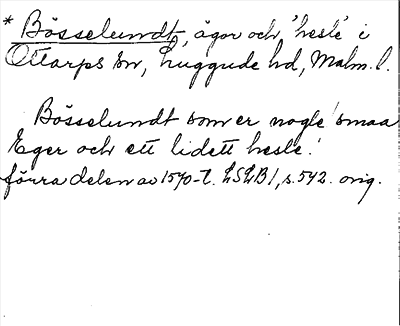 * Bösselundt, ägor och 'hesle' i
Ottarps sn, Luggude hd, Malm. l.
Bösselundt som er nogle smaa
Eger och ett lidett hesle.
förra delen av 1570-t. LSLB 1, s. 542. orig.